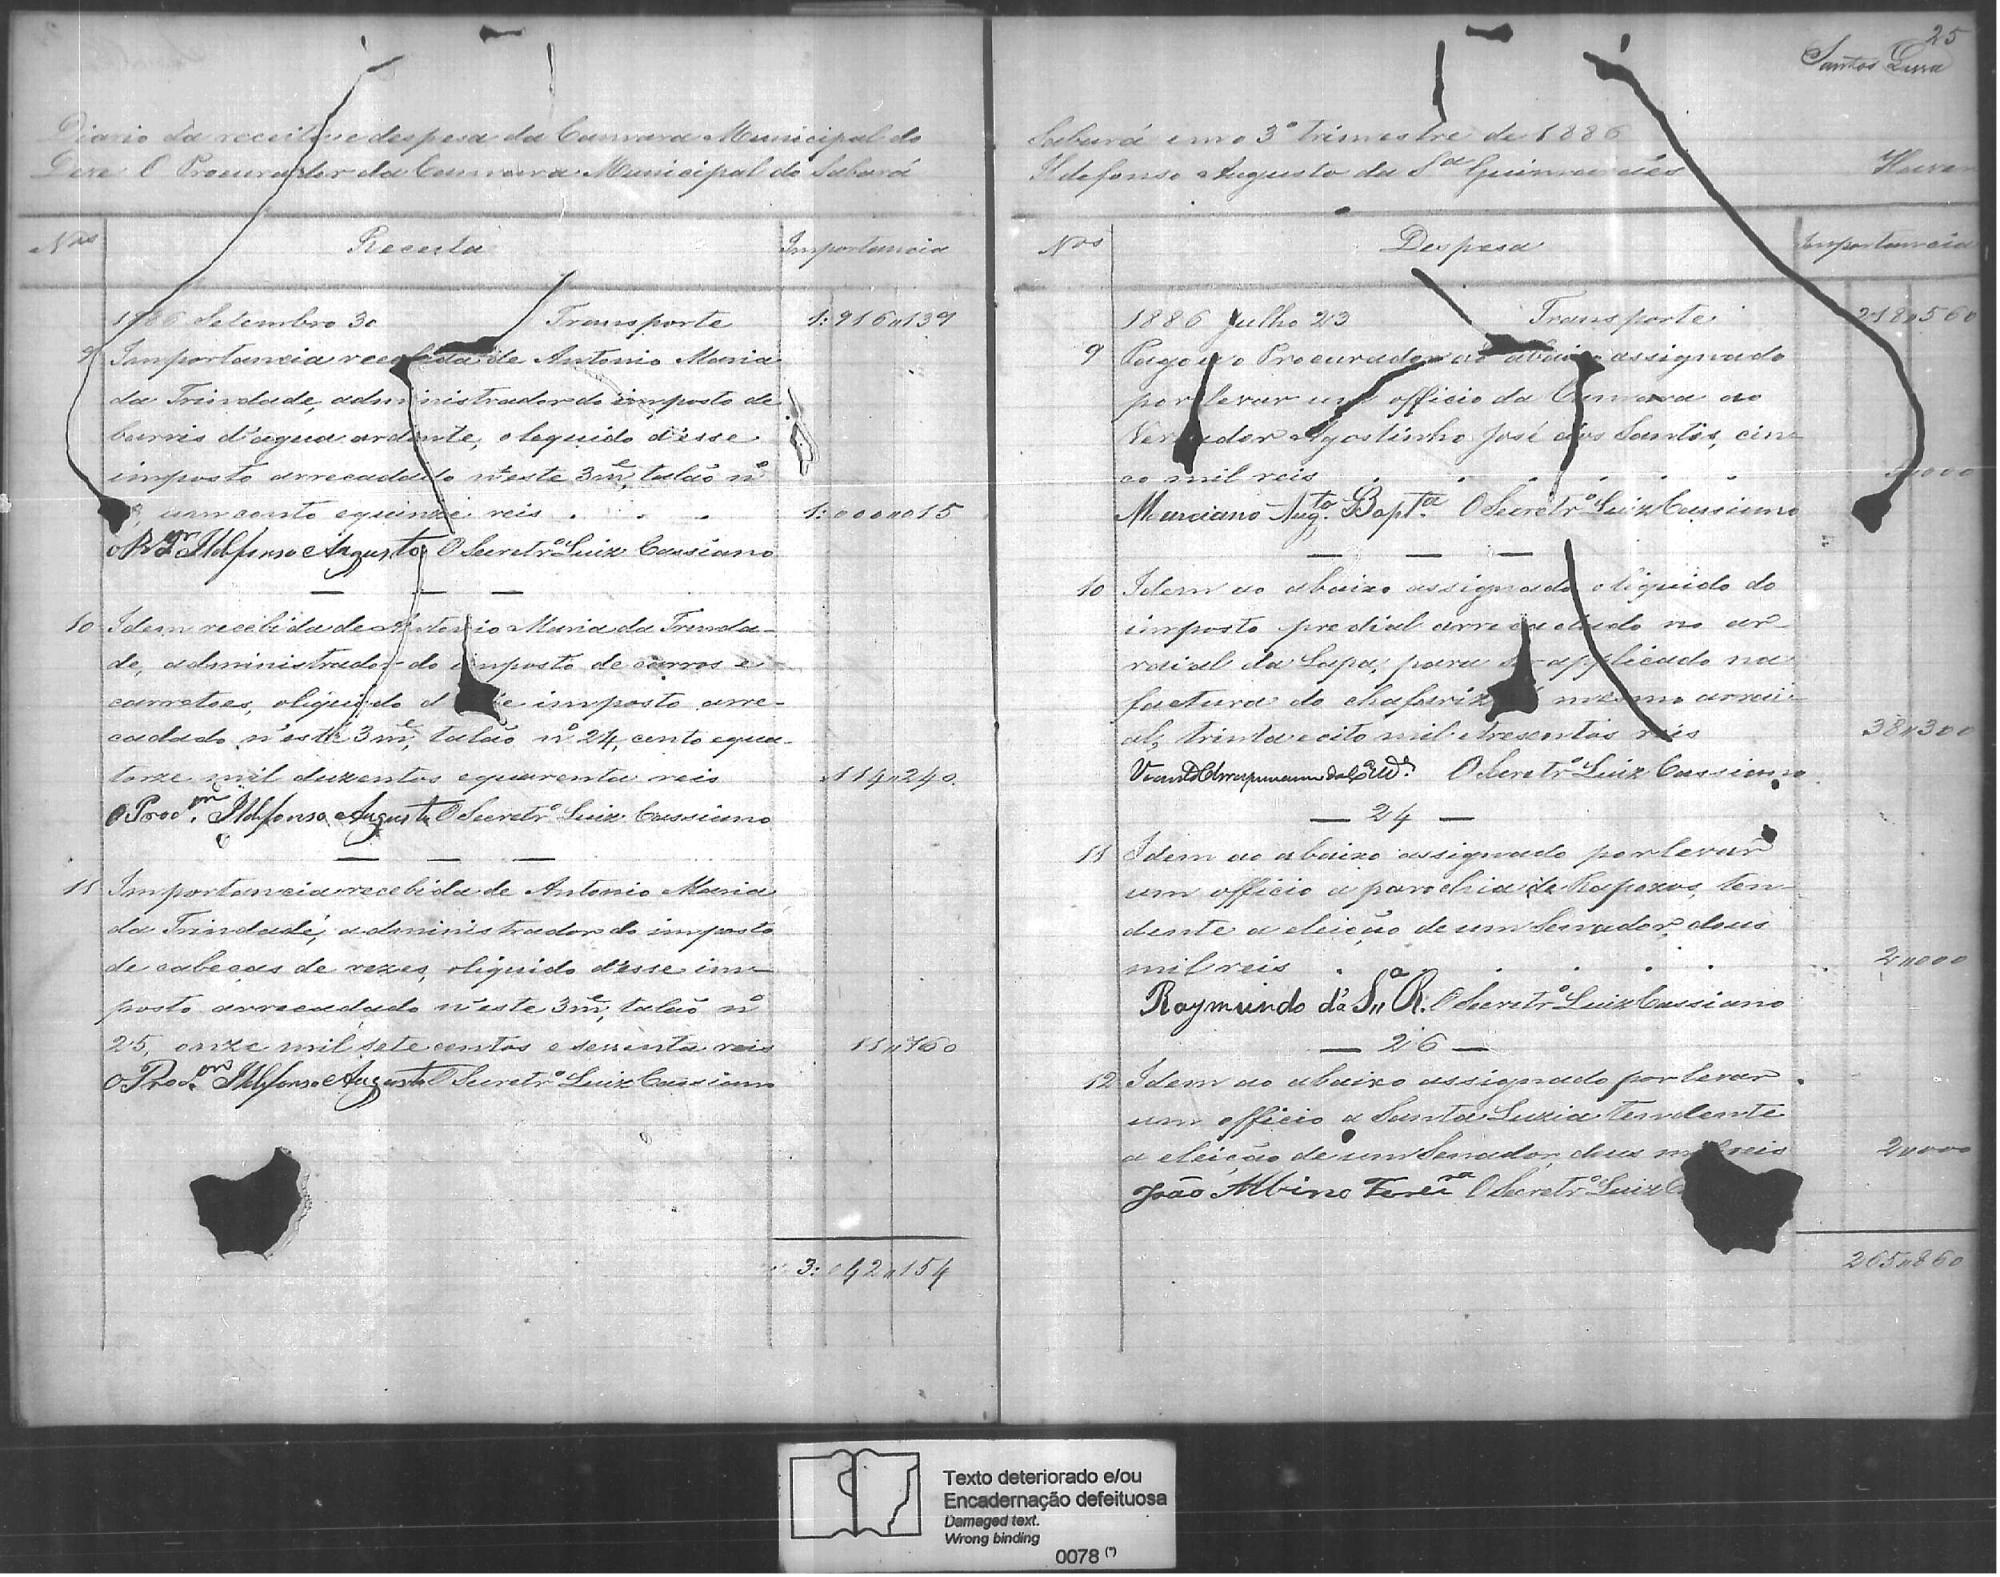 Diario da receita e despesa da Camara Municipal do
Deve O Procurador da Camara Municipal do Sabará
Nos Receita Importancia
1886 Setembro 30 Transporte 1:916"139
9 Importancia recebida de Antonio Maria
da Trindade, administrador do imposto de
barris d'agua ardente, o lequido d'esse
imposto arrecadado n'este 3me, talão nº
um conto e quinze reis . . . 1:000"015
O Proor Ildefonso Augusto O Secretrº Luiz Cassiano
— — —
10 Idem recebida de Antonio Maria da Trinda-
de, administrador do imposto de carros e
carretões, o liquido d'este imposto arre-
cadado n'este 3me, talão nº 24, cento e qua-
torze mil duzentos e quarenta reis 114"240
O Procor Ildefonso Augusto O Secretrº Luiz Cassiano
— — —
11 Importancia recebida de Antonio Maria
da Trindade, administrador do imposto
de cabeças de rezes, o liquido d'esse im-
posto arrecadado n'este 3me, talão nº
25, onze mil sete centos e sessenta reis 11"760
O Procor Ildefonso Augusto O Secretrº Luiz Cassiano
3:042"154
25
Santos Lima
Sabará em o 3º trimestre de 1886
Ildefonso Augusto da Sª Guimarães Haver
Nos Despesa Importancia
1886 Julho 23 Transporte 218"560
9 Pagou o Procurador ao abaixo assignado
por levar um officio da Camara ao
Vereador Agostinho José dos Santos, cin-
co mil reis . . . . . 5"000
Marciano Augto Bapta O Secretrº Luiz Cassiano
— — —
10 Idem ao abaixo assignado o liquido do
imposto predial arrecadado no ar-
raial da Lapa, para ser applicado na
factura do chafariz do mesmo arrai-
al, trinta e oito mil e tresentos reis 38"300
O Secretrº Luiz Cassiano
— 24 —
11 Idem ao abaixo assignado por levar
um officio a parochia de Raposos, ten-
dente a eleição de um Senador, dous
mil reis . . . . . 2"000
Raymundo da Sª R. O Secretrº Luiz Cassiano
— 26 —
12 Idem ao abaixo assignado por levar
um officio a Santa Luzia tendente
a eleição de um Senador, dous mil reis 2"000
João Albino Ferra O Secretrº Luiz C
265"860
Texto deteriorado e/ou
Encadernação defeituosa
Damaged text.
Wrong binding
0078 (*)